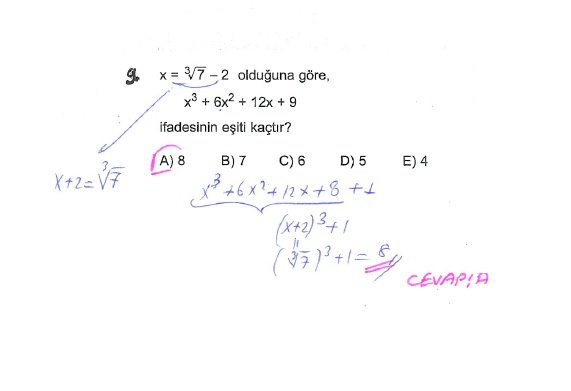 9. x = ∛7 – 2 olduğuna göre,
x³ + 6x² + 12x + 9
ifadesinin eşiti kaçtır?
A) 8 B) 7 C) 6 D) 5 E) 4
x+2=∛7
x³+6x²+12x+8+1
(x+2)³+1
(∛7)³+1=8
CEVAP:A